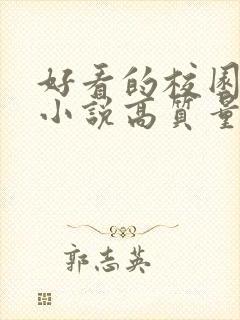 好看的校園
小說高質量
郭志英